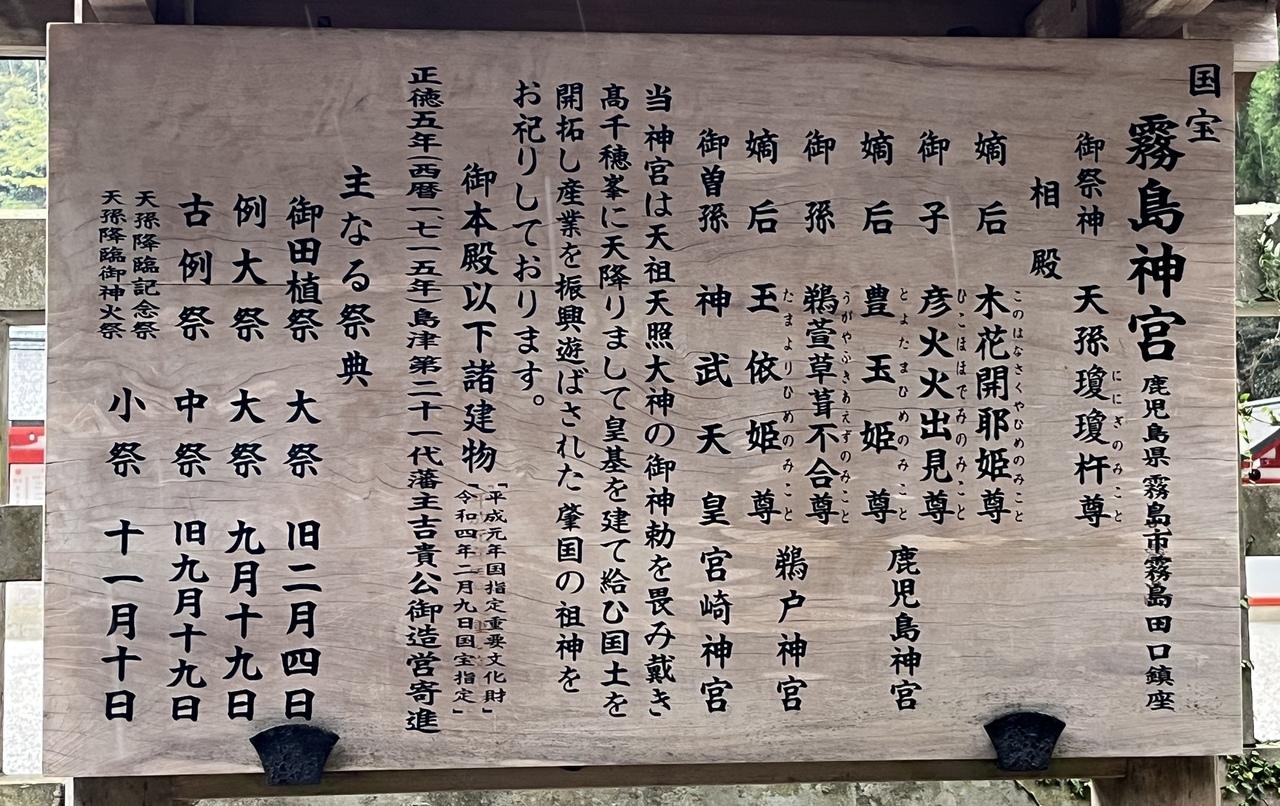 国宝
霧島神宮 鹿児島県霧島市霧島田口鎮座
御祭神 天孫瓊瓊杵尊
ににぎのみこと
相殿
嫡后 木花開耶姫尊
このはなさくやひめのみこと
御子 彦火火出見尊
ひこほほでみのみこと
嫡后 豊玉姫尊 鹿児島神宮
とよたまひめのみこと
御孫 鵜萱草葺不合尊
うがやふきあえずのみこと
嫡后 玉依姫尊 鵜戸神宮
たまよりひめのみこと
御曽孫 神武天皇 宮崎神宮
当神宮は天祖天照大神の御神勅を畏み戴き
高千穂峯に天降りまして皇基を建て給ひ国土を
開拓し産業を振興遊ばされた肇国の祖神を
お祀りしております。
御本殿以下諸建物
「平成元年国指定重要文化財」
「令和四年二月九日国宝指定」
正徳五年(西暦一、七一五年)島津第二十一代藩主吉貴公御造営寄進
主なる祭典
御田植祭 大祭 旧二月四日
例大祭 大祭 九月十九日
古例祭 中祭 旧九月十九日
天孫降臨記念祭
天孫降臨御神火祭
小祭 十一月十日